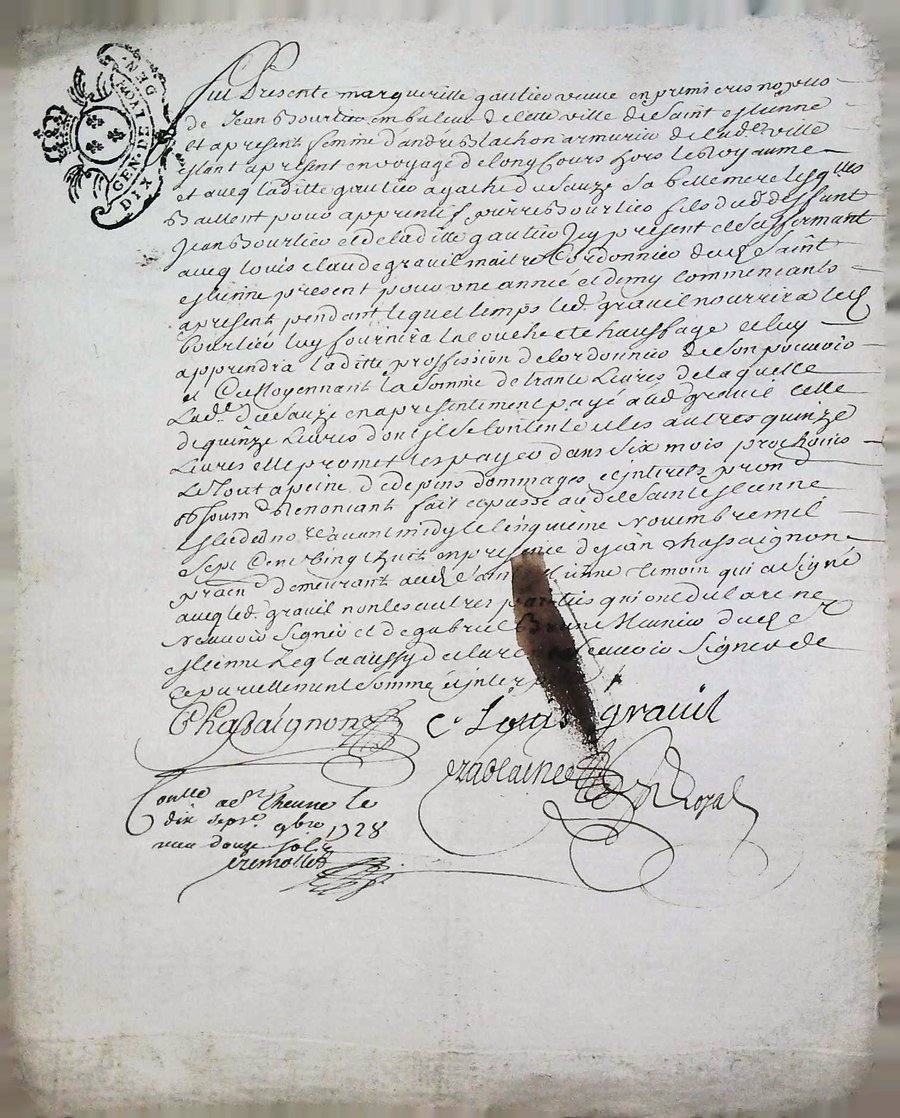 GEN. DE LYON
DIX DEN.
Fut Presente margueritte gautier veuve en premieres nopces
de Jean Bourlier embaleur de cette ville de Saint estienne
et apresent femme d'andré Blachon armurier de lad.e ville
estant apresent en voyage de long Cours hors le Royaume
et avecq laditte gautier agathe desauze sa belle mere lesq.lles
Baillent pour apprentif pierre Bourlier fils dud. deffunt
Jean Bourlier et de laditte gautier Icy present et s'affermant
avecq louis claude gravil maitre Cordonnier dud. Saint
estienne present pour une année et demy commencants
apresent pendant lequel temps led. gravil nourrira led.
bourlier luy fournira la couche et chauffage et luy
apprendra laditte proffession de Cordonnier de son pouvoir
et Ce Moyennant la somme de trante Livres de laquelle
Lad.e desauze en a presentement payé aud. gravil celle
de quinze Livres dont Il se Contente et les autres quinze
Livres elle promet les payer dans six mois prochains
Le Tout a peine de depens dommages et intirets prom
ob soum renoncant fait et passé aud. Saint estienne
estude du no.re avant midy le Cinquieme novembre mil
sept Cent vingt huit en presence de jean Chassaignon
prati.n demeurant aud. Saint estienne temoin qui a signé
avecq led. gravil non les autres parties qui ont declaré ne
scavoir signer et de gabriel Brune Meunier dud. S.t
estienne Leq.l a aussy declaré ne scavoir signer de
ce pareillement sommé et interp
Chasaignon C. Louis gravil
Royal
Con.llé a S.t Etienne le
dix sept.e 9bre 1728
receu douze sols